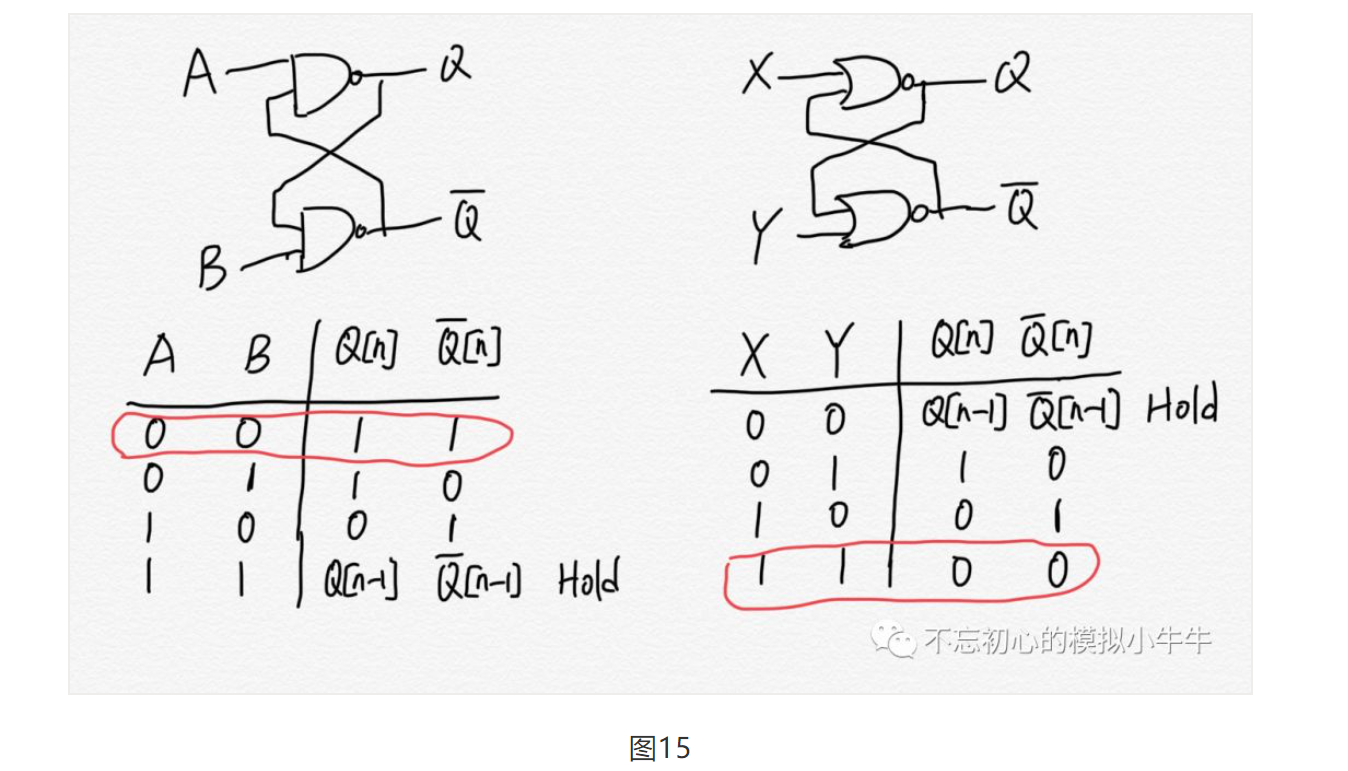 A Q
B Q̅
A B Q[n] Q̅[n]
0 0 1 1
0 1 1 0
1 0 0 1
1 1 Q[n-1] Q̅[n-1] Hold
X Q
Y Q̅
X Y Q[n] Q̅[n]
0 0 Q[n-1] Q̅[n-1] Hold
0 1 1 0
1 0 0 1
1 1 0 0
不忘初心的模拟小牛牛
图15